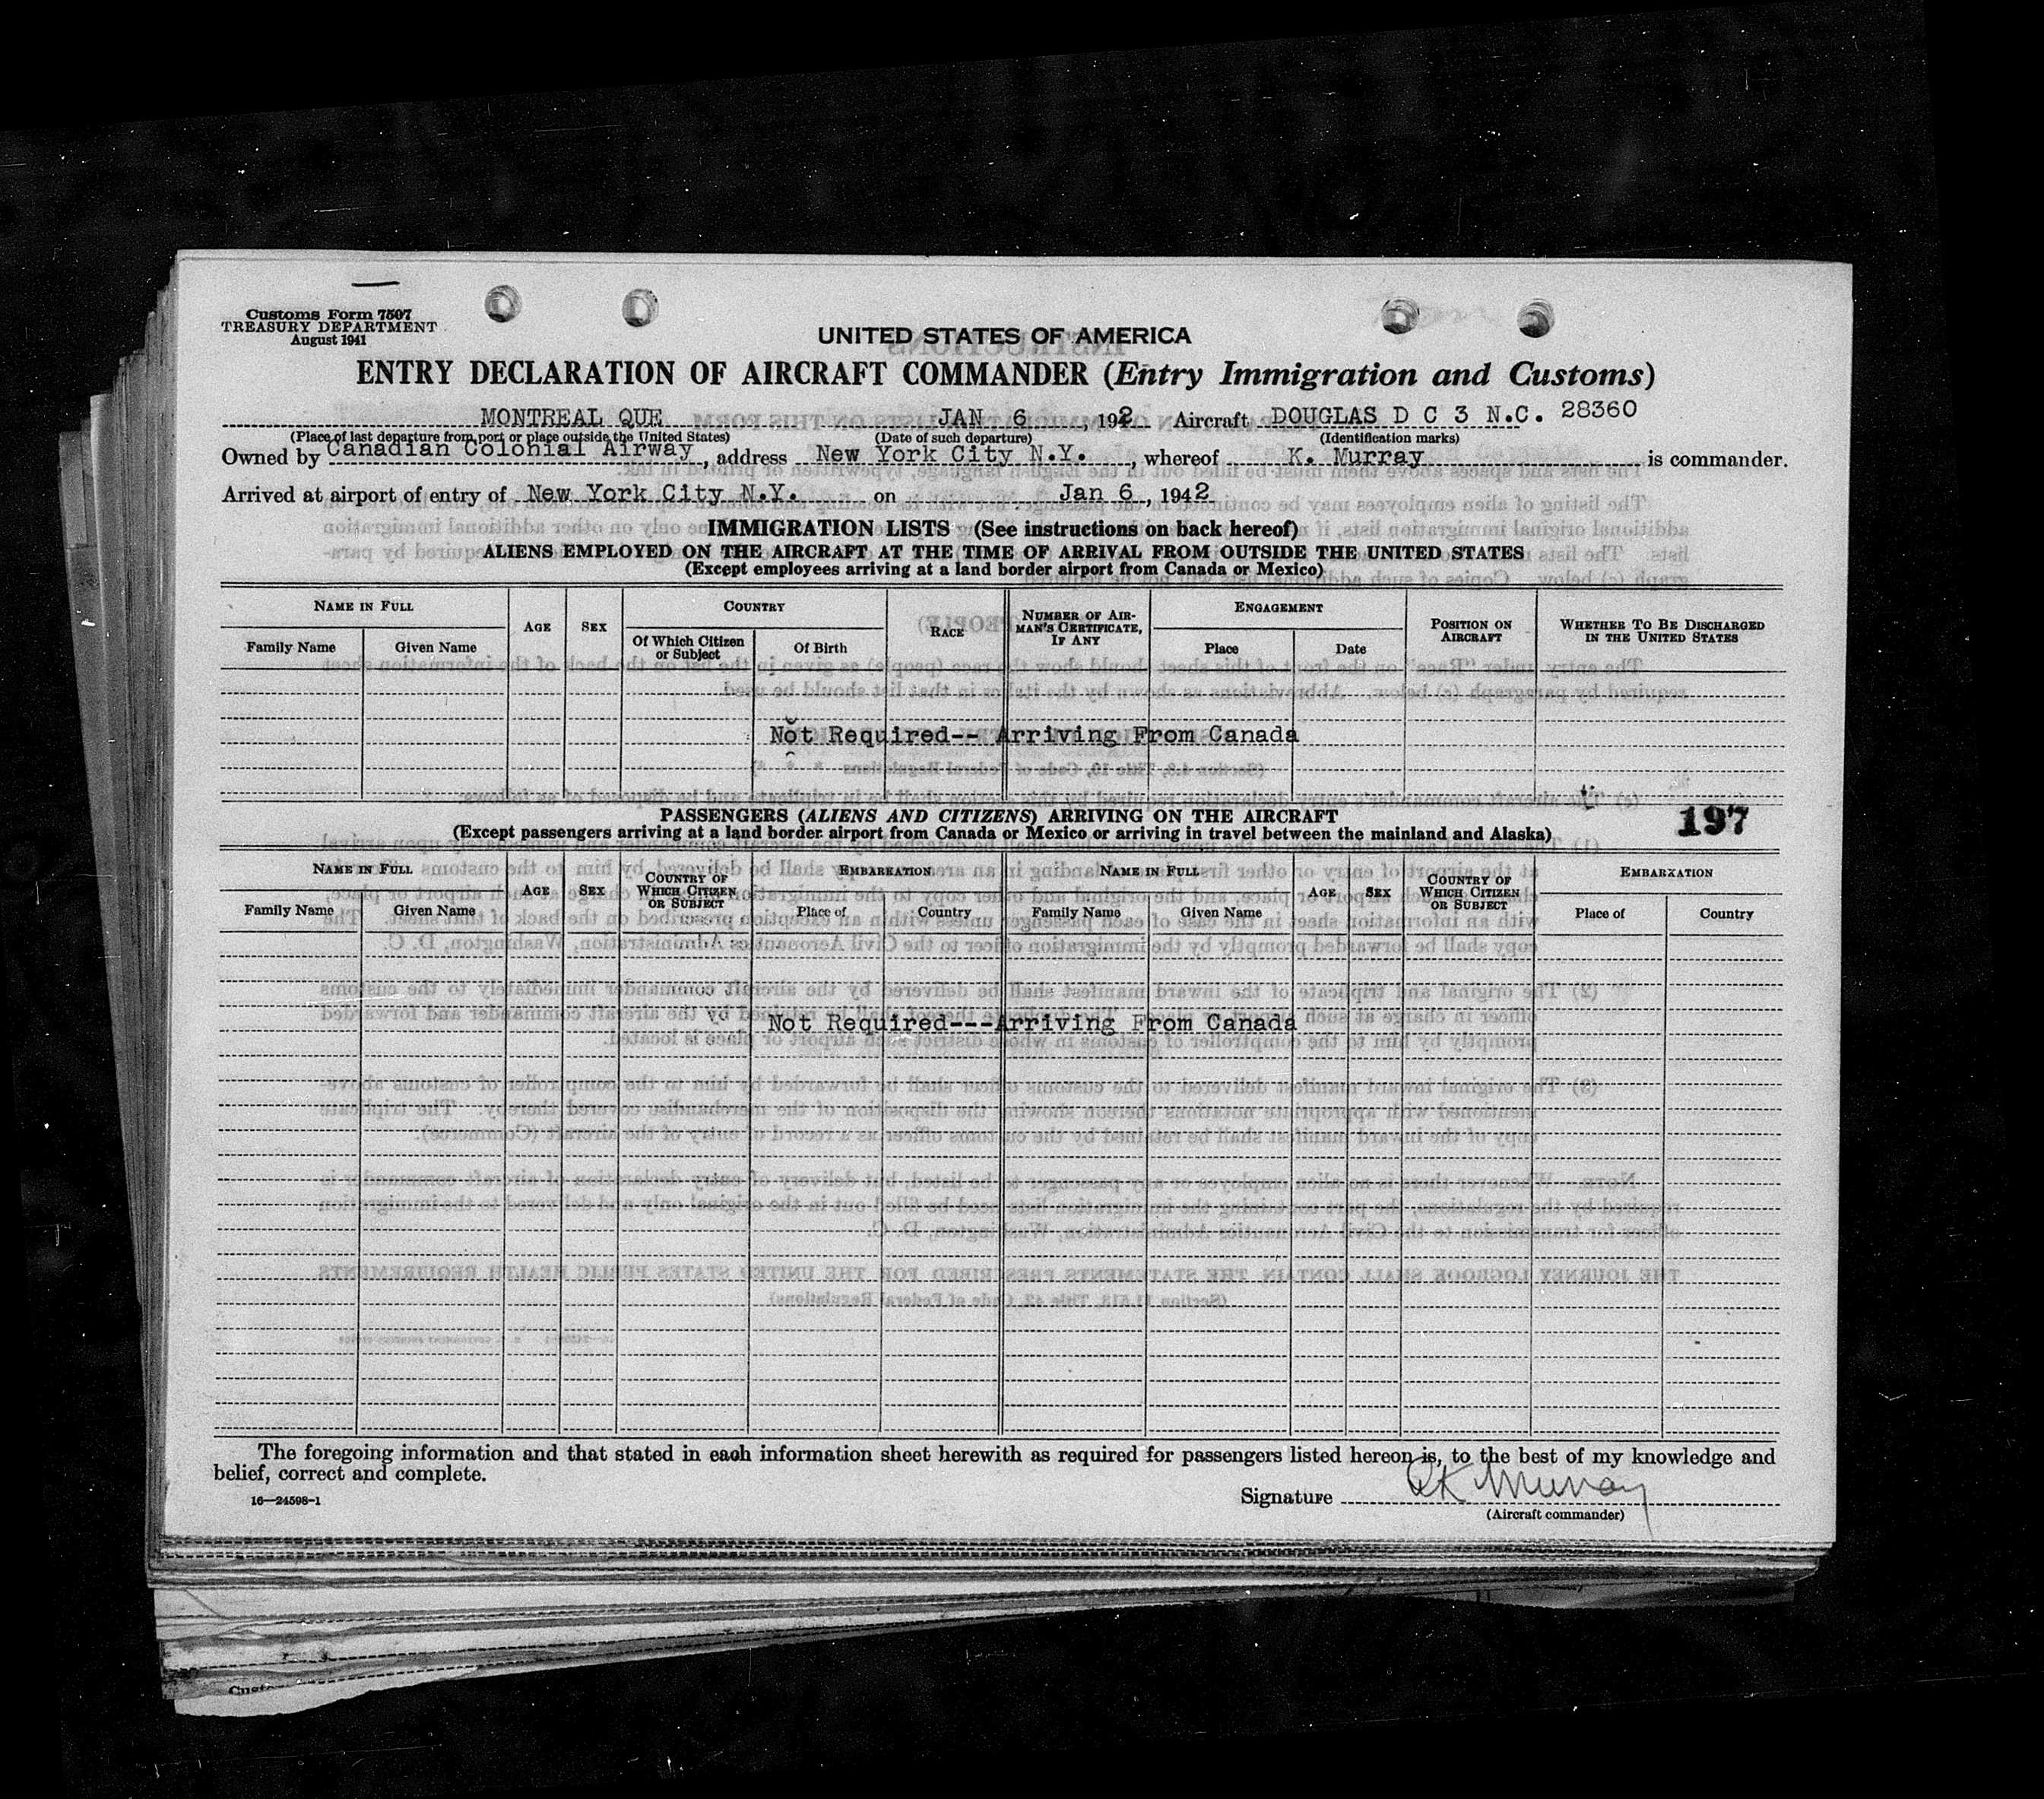 Customs Form 7507
TREASURY DEPARTMENT
August 1941
UNITED STATES OF AMERICA
ENTRY DECLARATION OF AIRCRAFT COMMANDER (Entry Immigration and Customs)
MONTREAL QUE JAN 6, 1942 Aircraft DOUGLAS D C 3 N.C. 28360
(Place of last departure from port or place outside the United States) (Date of such departure) (Identification marks)
Owned by Canadian Colonial Airway, address New York City N.Y., whereof K. Murray is commander.
Arrived at airport of entry of New York City N.Y. on Jan 6, 1942
IMMIGRATION LISTS (See instructions on back hereof)
ALIENS EMPLOYED ON THE AIRCRAFT AT THE TIME OF ARRIVAL FROM OUTSIDE THE UNITED STATES
(Except employees arriving at a land border airport from Canada or Mexico)
NAME IN FULL AGE SEX COUNTRY RACE NUMBER OF AIRMAN'S CERTIFICATE, IF ANY ENGAGEMENT POSITION ON AIRCRAFT WHETHER TO BE DISCHARGED IN THE UNITED STATES
Family Name Given Name Of Which Citizen or Subject Of Birth Place Date
Not Required-- Arriving From Canada
PASSENGERS (ALIENS AND CITIZENS) ARRIVING ON THE AIRCRAFT
197
(Except passengers arriving at a land border airport from Canada or Mexico or arriving in travel between the mainland and Alaska)
NAME IN FULL AGE SEX COUNTRY OF WHICH CITIZEN OR SUBJECT EMBARKATION NAME IN FULL AGE SEX COUNTRY OF WHICH CITIZEN OR SUBJECT EMBARKATION
Family Name Given Name Place of Country Family Name Given Name Place of Country
Not Required---Arriving From Canada
The foregoing information and that stated in each information sheet herewith as required for passengers listed hereon is, to the best of my knowledge and
belief, correct and complete.
16—24598-1
Signature RK Murray
(Aircraft commander)